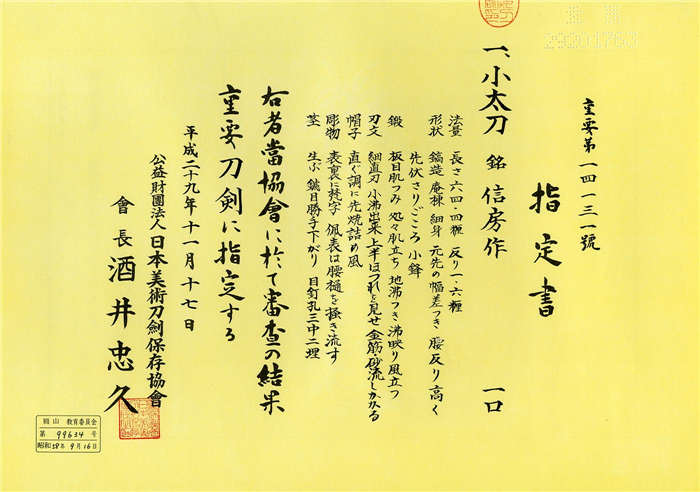 重要第一四一三一號
指定書
一、小太刀 銘 信房作 一口
法量 長さ六四・四糎 反り一・六糎
形状 鎬造 庵棟 細身 元先の幅差つき 腰反り高く
先伏さりごころ 小鋒
鍛 板目肌つみ 処々肌立ち 地沸つき 沸映り風立つ
刃文 細直刃 小沸出来 上半ほつれを見せ 金筋 砂流しかかる
帽子 直ぐ調に先焼詰め風
彫物 表裏に梵字 佩表は腰樋を掻き流す
茎 生ぶ 鑢目勝手下がり 目釘孔三中二埋
右者當協會に於て審査の結果
重要刀剣に指定する
平成二十九年十一月十七日
公益財團法人日本美術刀劍保存協會
會長 酒井忠久
教育委員会
第 99634 号
昭和58年9月16日